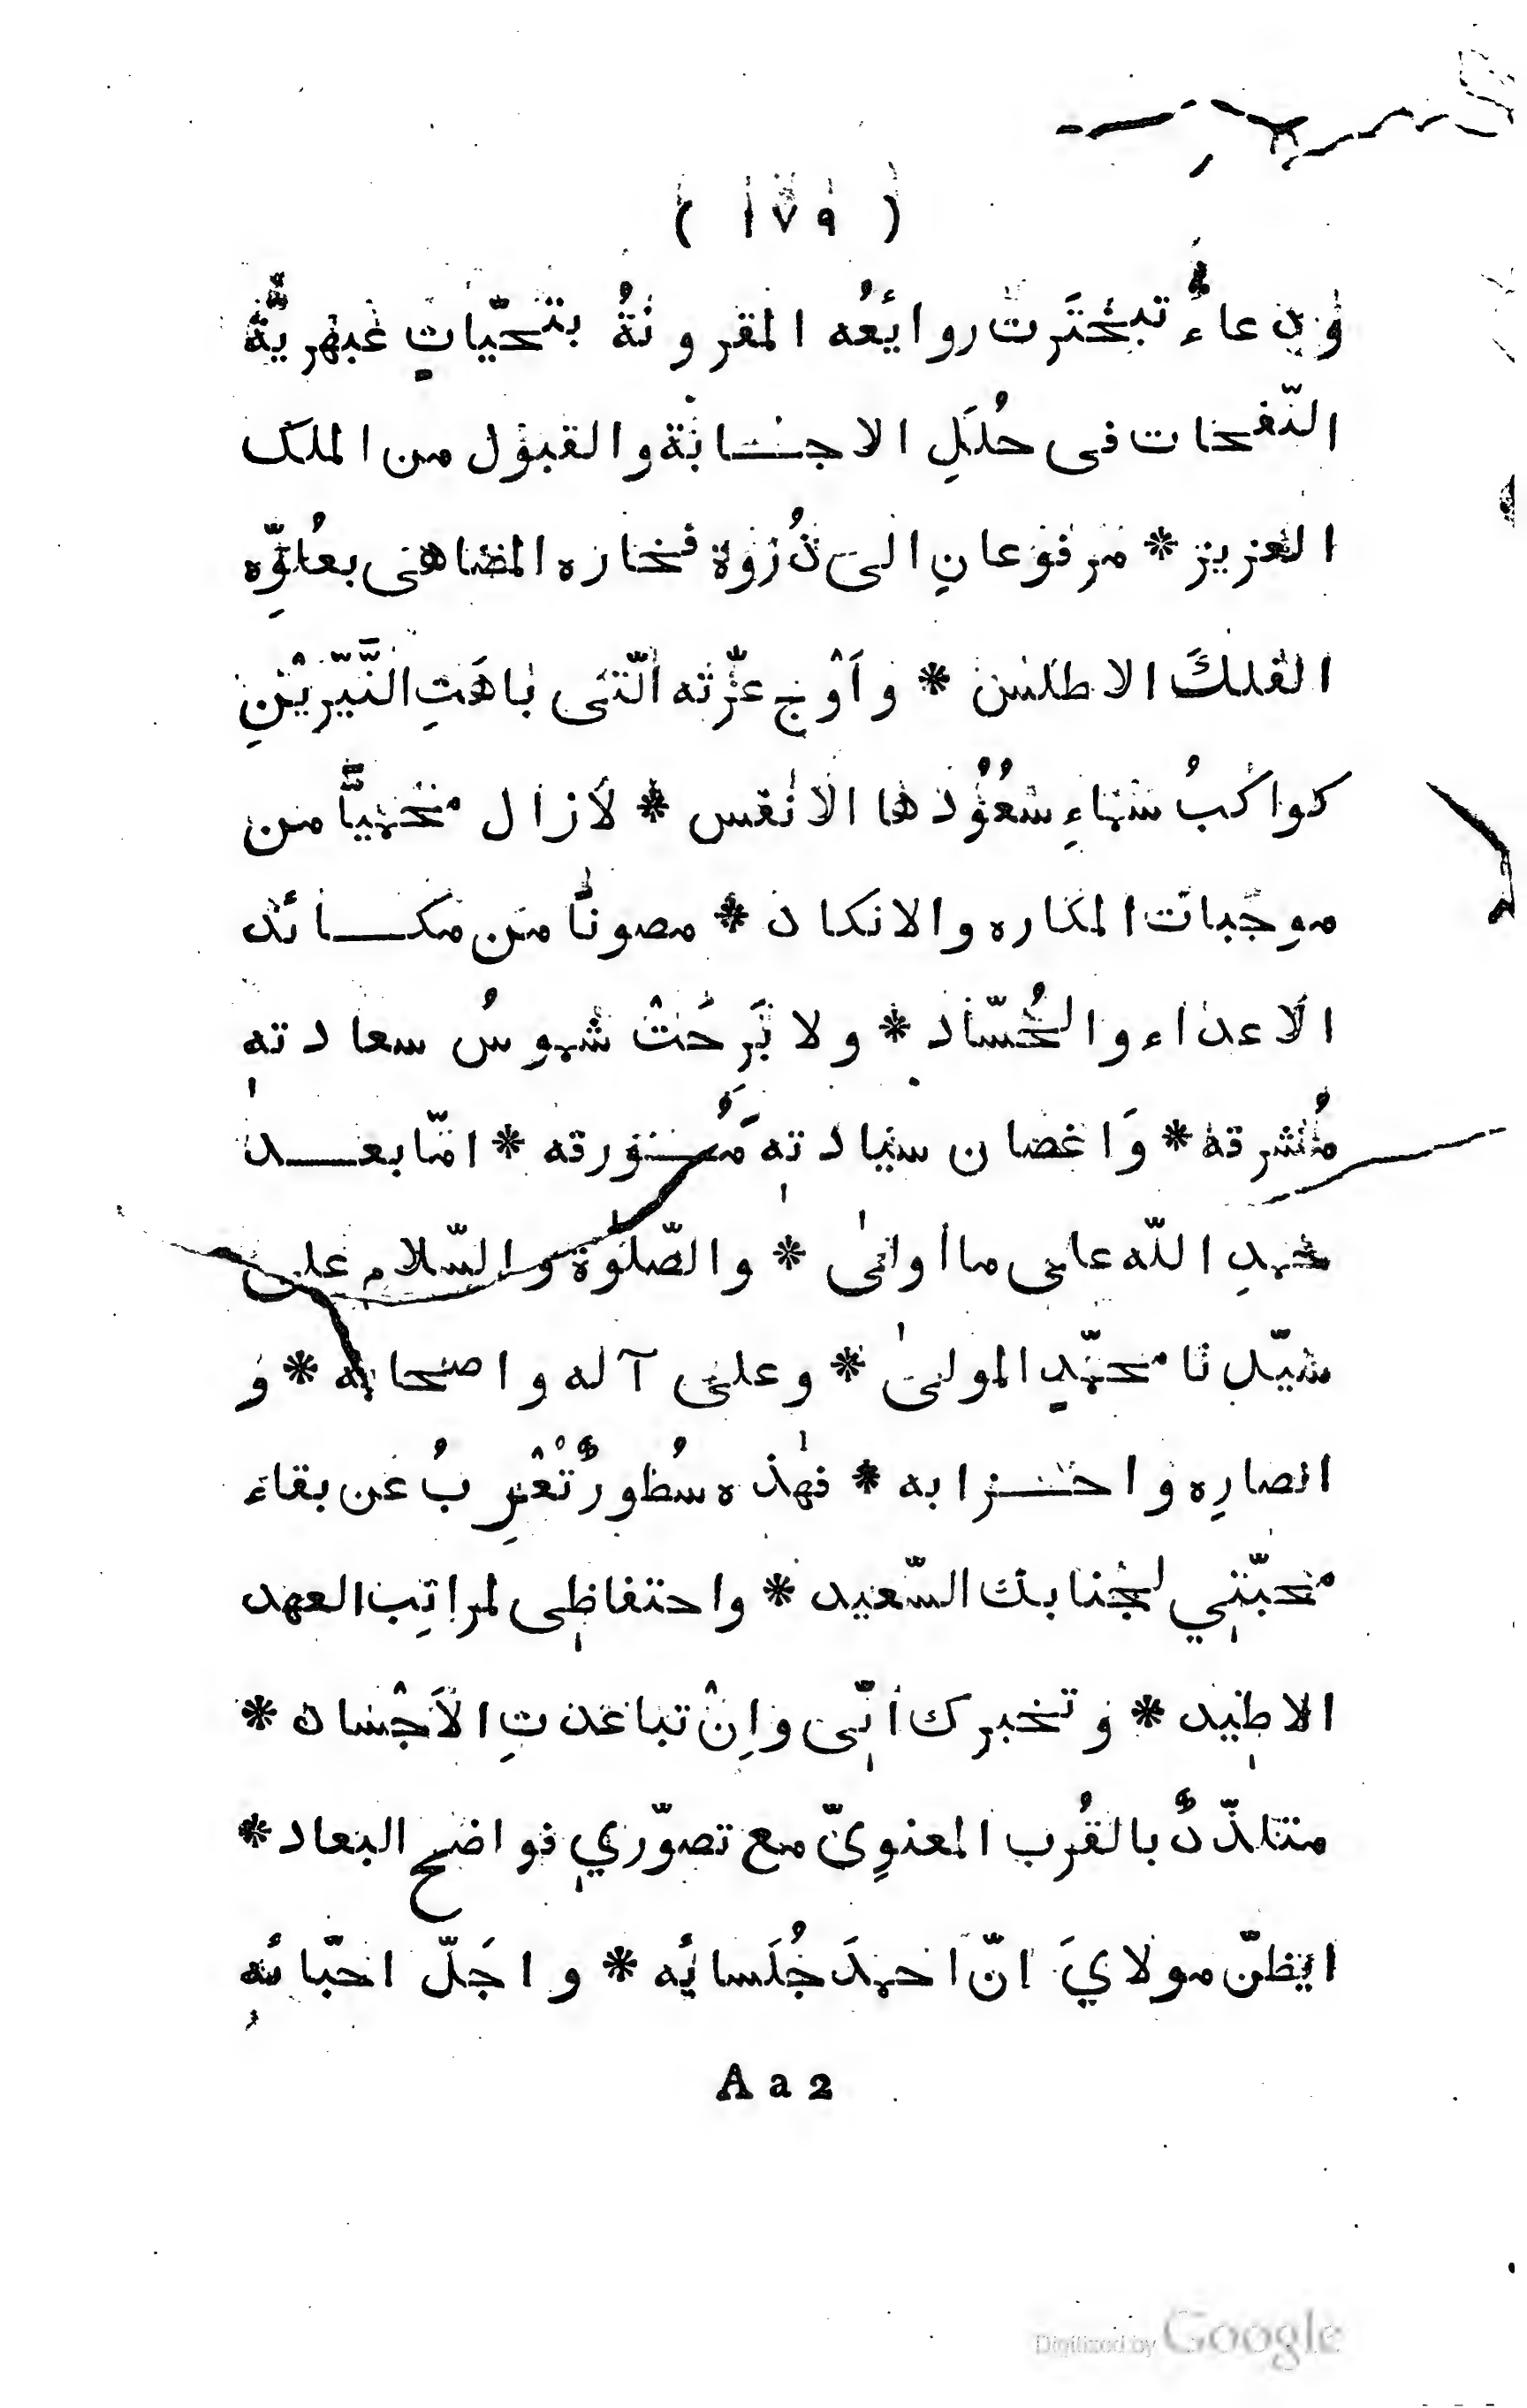 ( ١٧٩ )
ودعاءٌ تبخْتَرت روائعُه المقرونةُ بتحيّاتٍ عَبْهَريّةِ
النّفحات فى حُلَلِ الاجابة والقبول من الملك
العزيز * مرفوعانِ الى ذُروة فخاره المضاهى بعُلوِّه
الفلكَ الاطلس * واَوْج عزّته الّتى باهَتِ النَّيّريْنِ
كواكبُ سماءِ سُعُوْدها الانفس * لازال محميّاً من
موجبات المكاره والانكاد * مصوناً من مكائد
الاعداء والحُسّاد * ولا بَرِحَتْ شموسُ سعادته
مُشرقه * وَاغصان سيادته مُورقه * امّا بعد
حمدِ اللّه على ما اولىٰ * والصّلوٰة والسّلامِ على
سيّدنا محمّدٍ المولىٰ * وعلى آله واصحابه * و
انصارِه واحزابه * فهٰذه سُطورٌ تُعْرِبُ عن بقاء
محبّتي لجنابك السّعيد * واحتفاظي لمراتِب العهد
الاطيد * وتخبرك انّى واِنْ تباعدتِ الاَجْساد *
متلذّذٌ بالقُرب المعنوِىّ مع تصوّري فواضح البعاد *
ايظنّ مولايَ انّ احمدَ جُلَسائه * واجَلّ احبّائه
Aa2
Digitized by Google